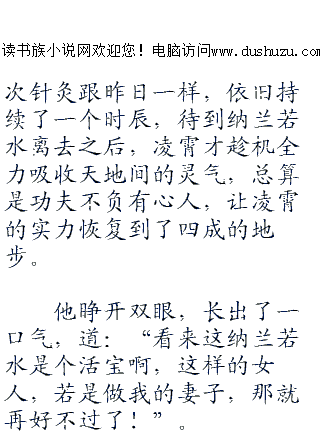 读书族小说网欢迎您！电脑访问www.dushuzu.com
次针灸跟昨日一样，依旧持
续了一个时辰，待到纳兰若
水离去之后，凌霄才趁机全
力吸收天地间的灵气，总算
是功夫不负有心人，让凌霄
的实力恢复到了四成的地
步。
他睁开双眼，长出了一
口气，道：“看来这纳兰若
水是个活宝啊，这样的女
人，若是做我的妻子，那就
再好不过了！”。